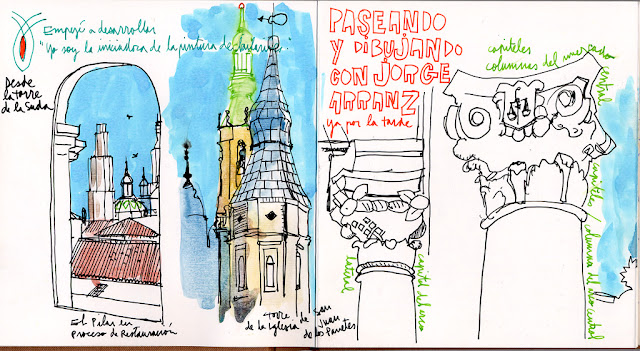 Empezé a desarrollar
"Yo soy la iniciadora de la pintura de
Desde
la torre
de la Suda
El Pilar en
proceso de Restauración
Torre de San
de la Iglesia Juan
de los Panetes
PASEANDO
Y DIBUJANDO
CON JORGE
ARRANZ
ya por la tarde
capiteles
columnas del mercado
central
lateral
capitel del arco
capiteles / columna del arco central